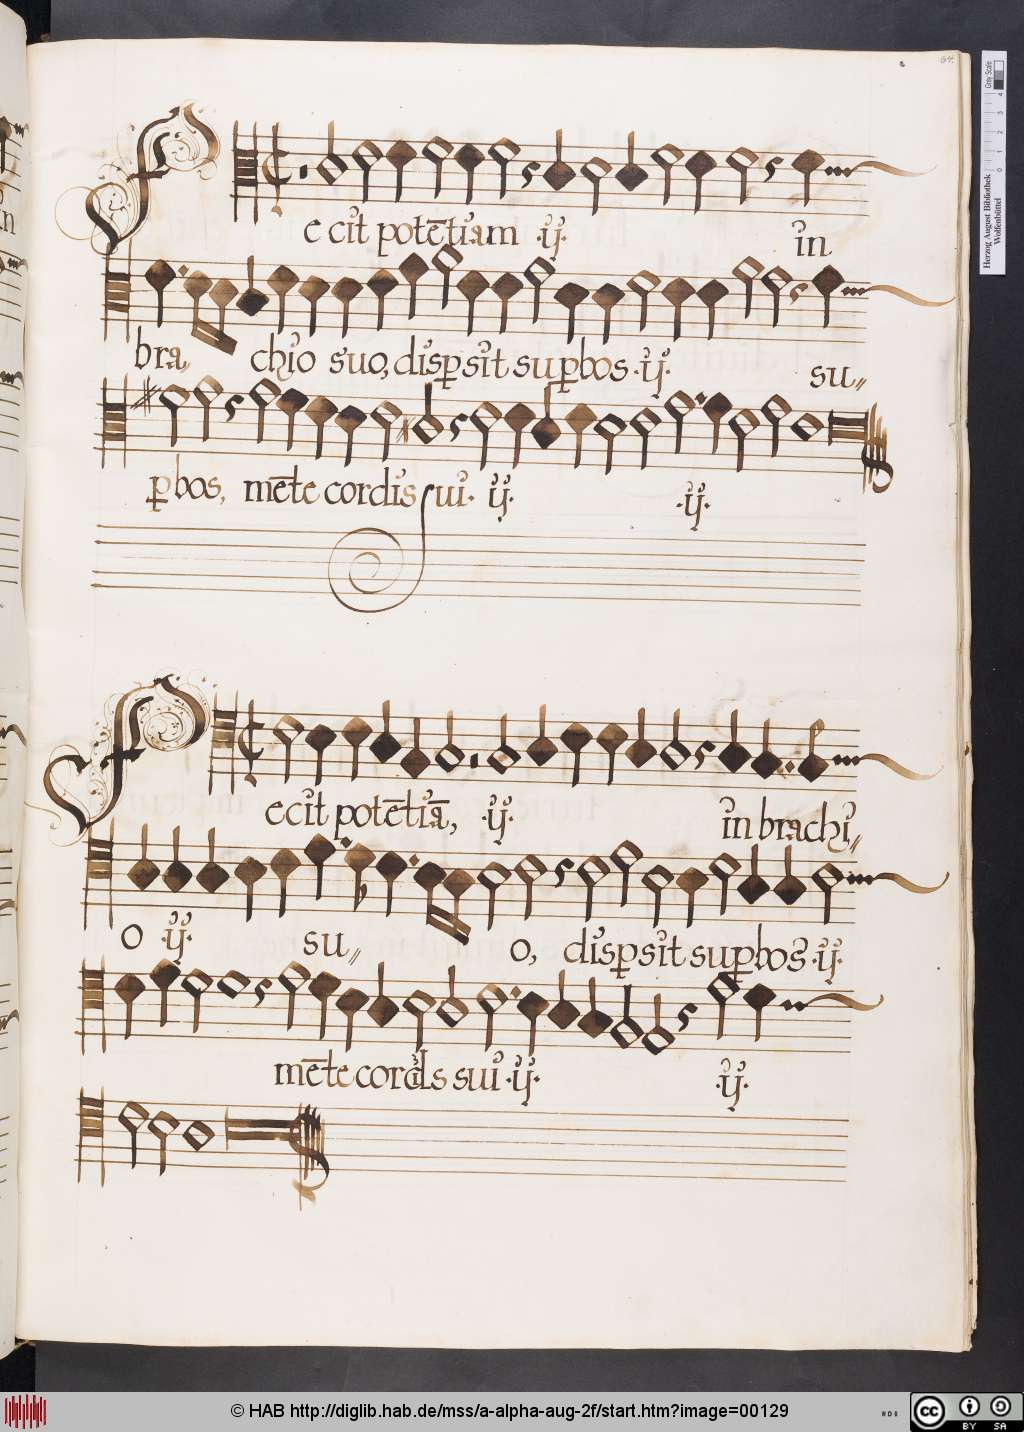 64.
Fecit potēti&am ·ij· in
bra⸗ chio suo, dispsit supbos ·ij· su⸗
pbos, mēte cordis sui· ij· ·ij·
Fecit potētiā, ·ij· in brachi⸗
o ·ij· su⸗ o, dispsit supbos ·ij·
mēte cordis sui ·ij· ·ij·
Gray Scale
0 1 2 3 4
Herzog August Bibliothek
Wolfenbüttel
© HAB http://diglib.hab.de/mss/a-alpha-aug-2f/start.htm?image=00129
cc BY SA